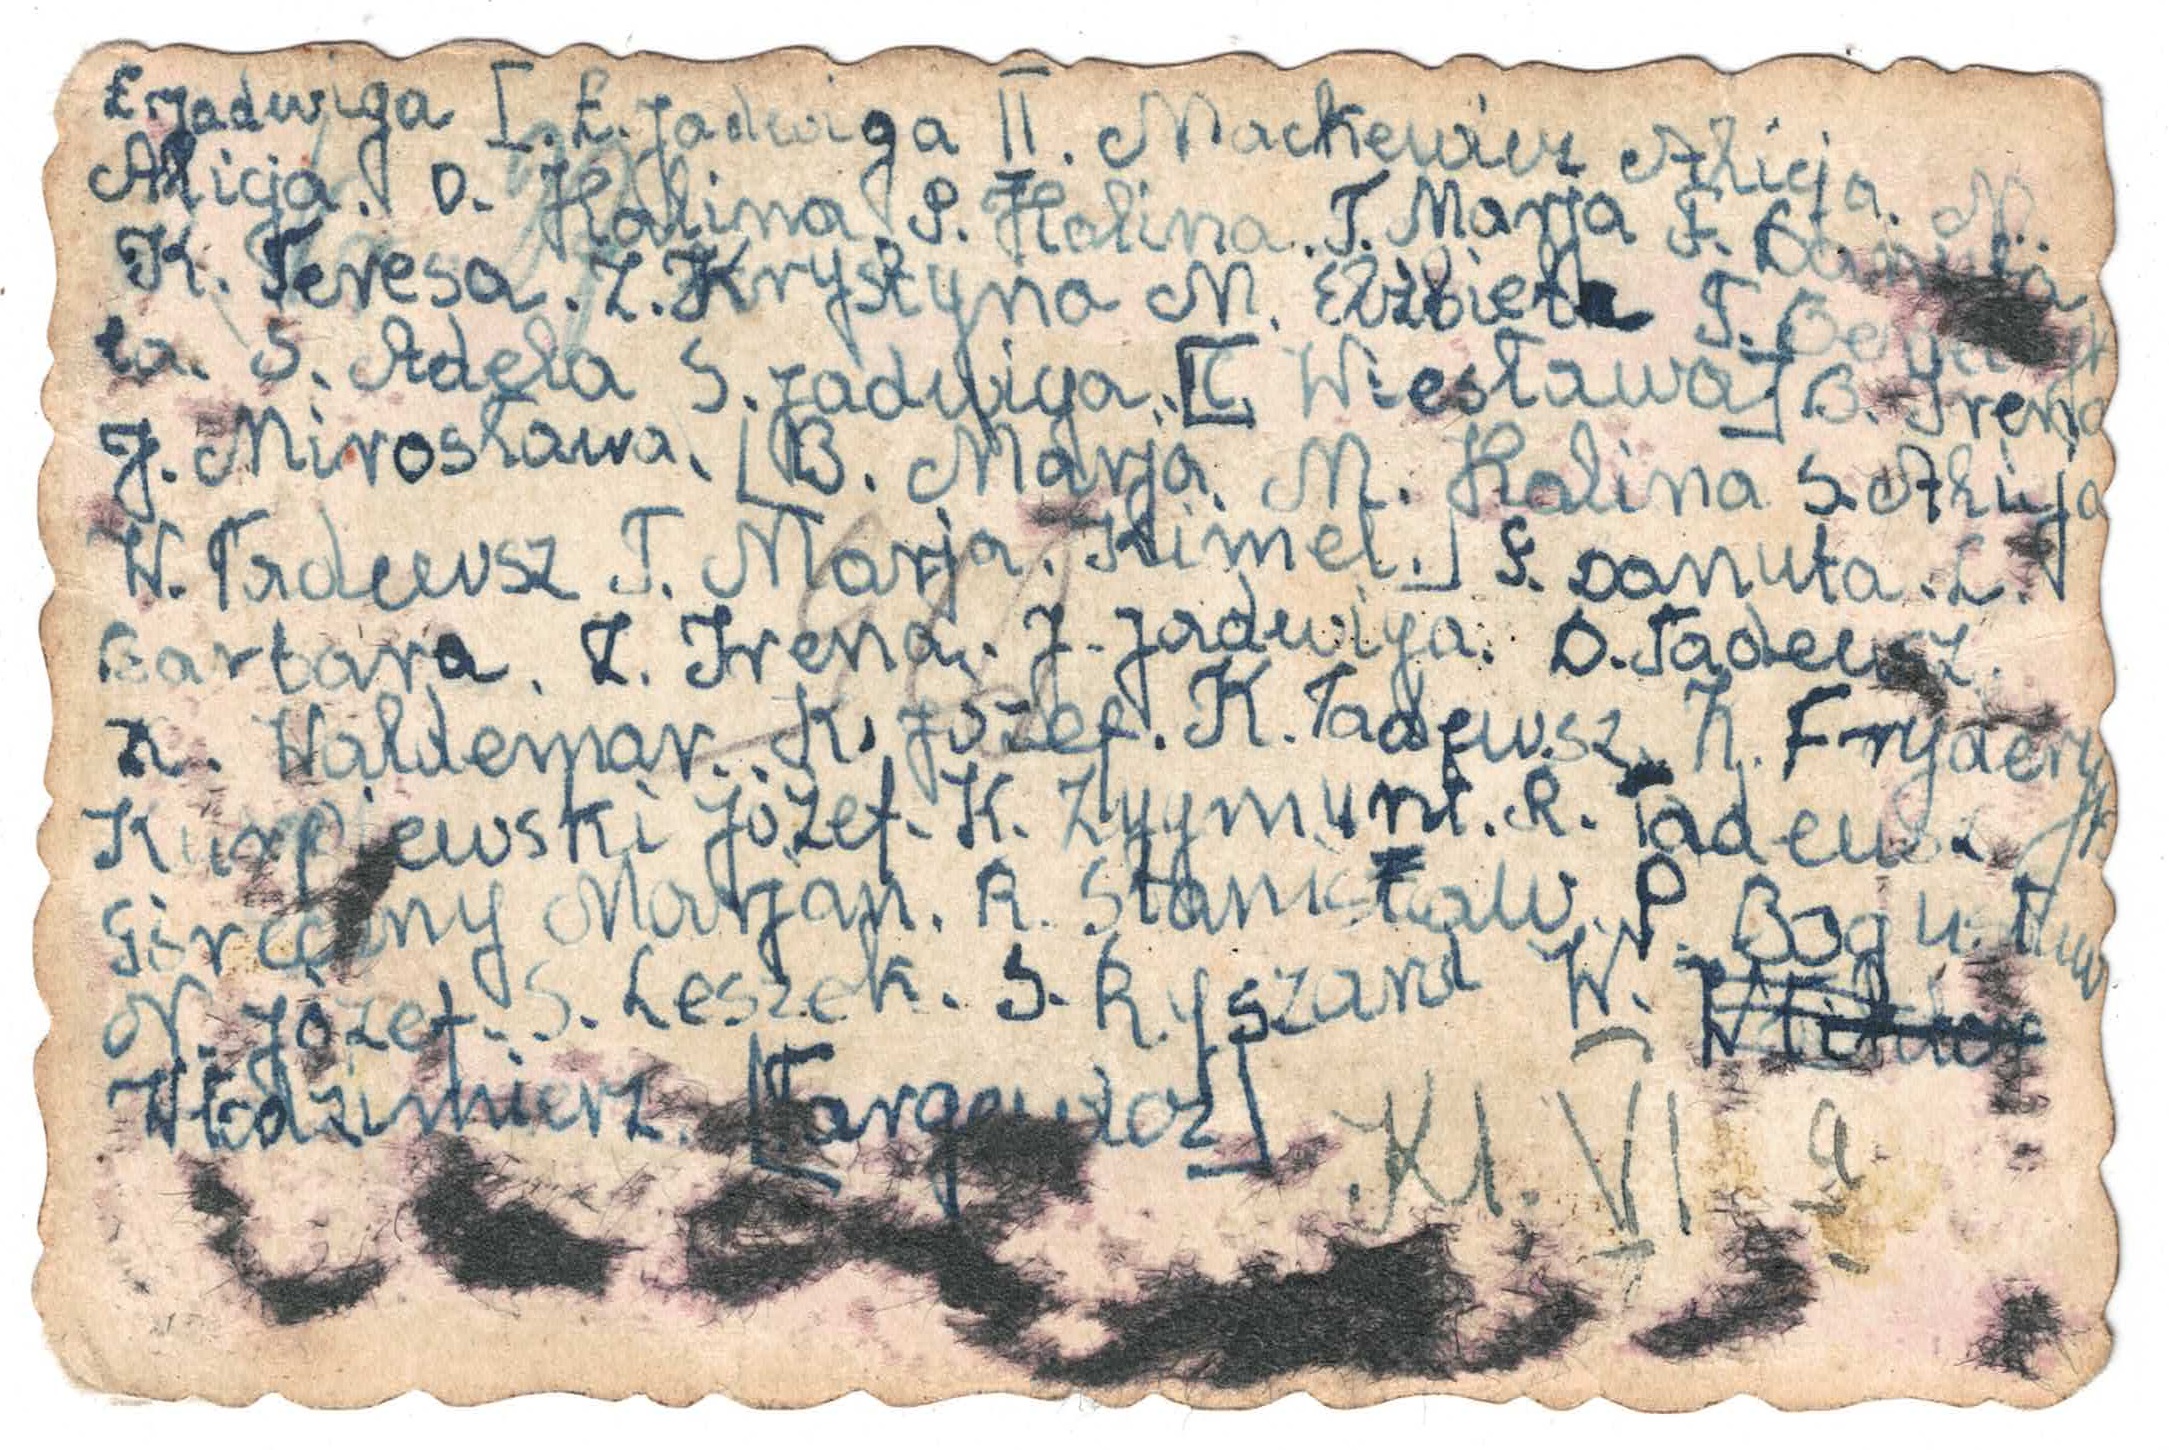 Ł. Jadwiga I. Ł. Jadwiga II. Mackiewicz Alicja. N.
Alicja. D. Halina P. Halina. T. Marja F. Danuta
K. Teresa. Z. Krystyna M. Elżbieta T.
ta. S. Adela S. Jadwiga. [T. Wiesława] B. Irena
J. Mirosława. [B. Marja. M. Halina S. Alicja
W. Tadeusz T. Marja. Kimel.] F. Danuta. L.
Barbara. Z. Irena. J. Jadwiga. D. Tadeusz.
K. Waldemar. K. Józef. K. Tadeusz. K. Fryderyk
Kurpiewski Józef. K. Zygmunt. R. Tadeusz
Marjan. R. Stanisław. P. Bogusław
N. Józef. S. Leszek. S. Ryszard W.
Włodzimierz. [Targowicz]
Kl. VI a